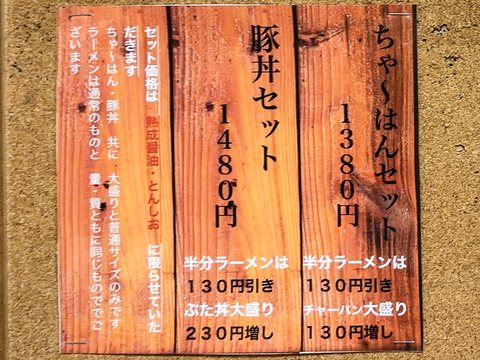 ちゃ〜はんセット
1380円
半分ラーメンは
130円引き
チャーハン大盛り
130円増し
豚丼セット
1480円
半分ラーメンは
130円引き
ぶた丼大盛り
230円増し
セット価格は 熟成醤油・とんしお に限らせていた
だきます
ちゃ〜はん・豚丼 共に 大盛りと普通サイズのみです
ラーメンは通常のものと 量・質ともに同じものででご
ざいます